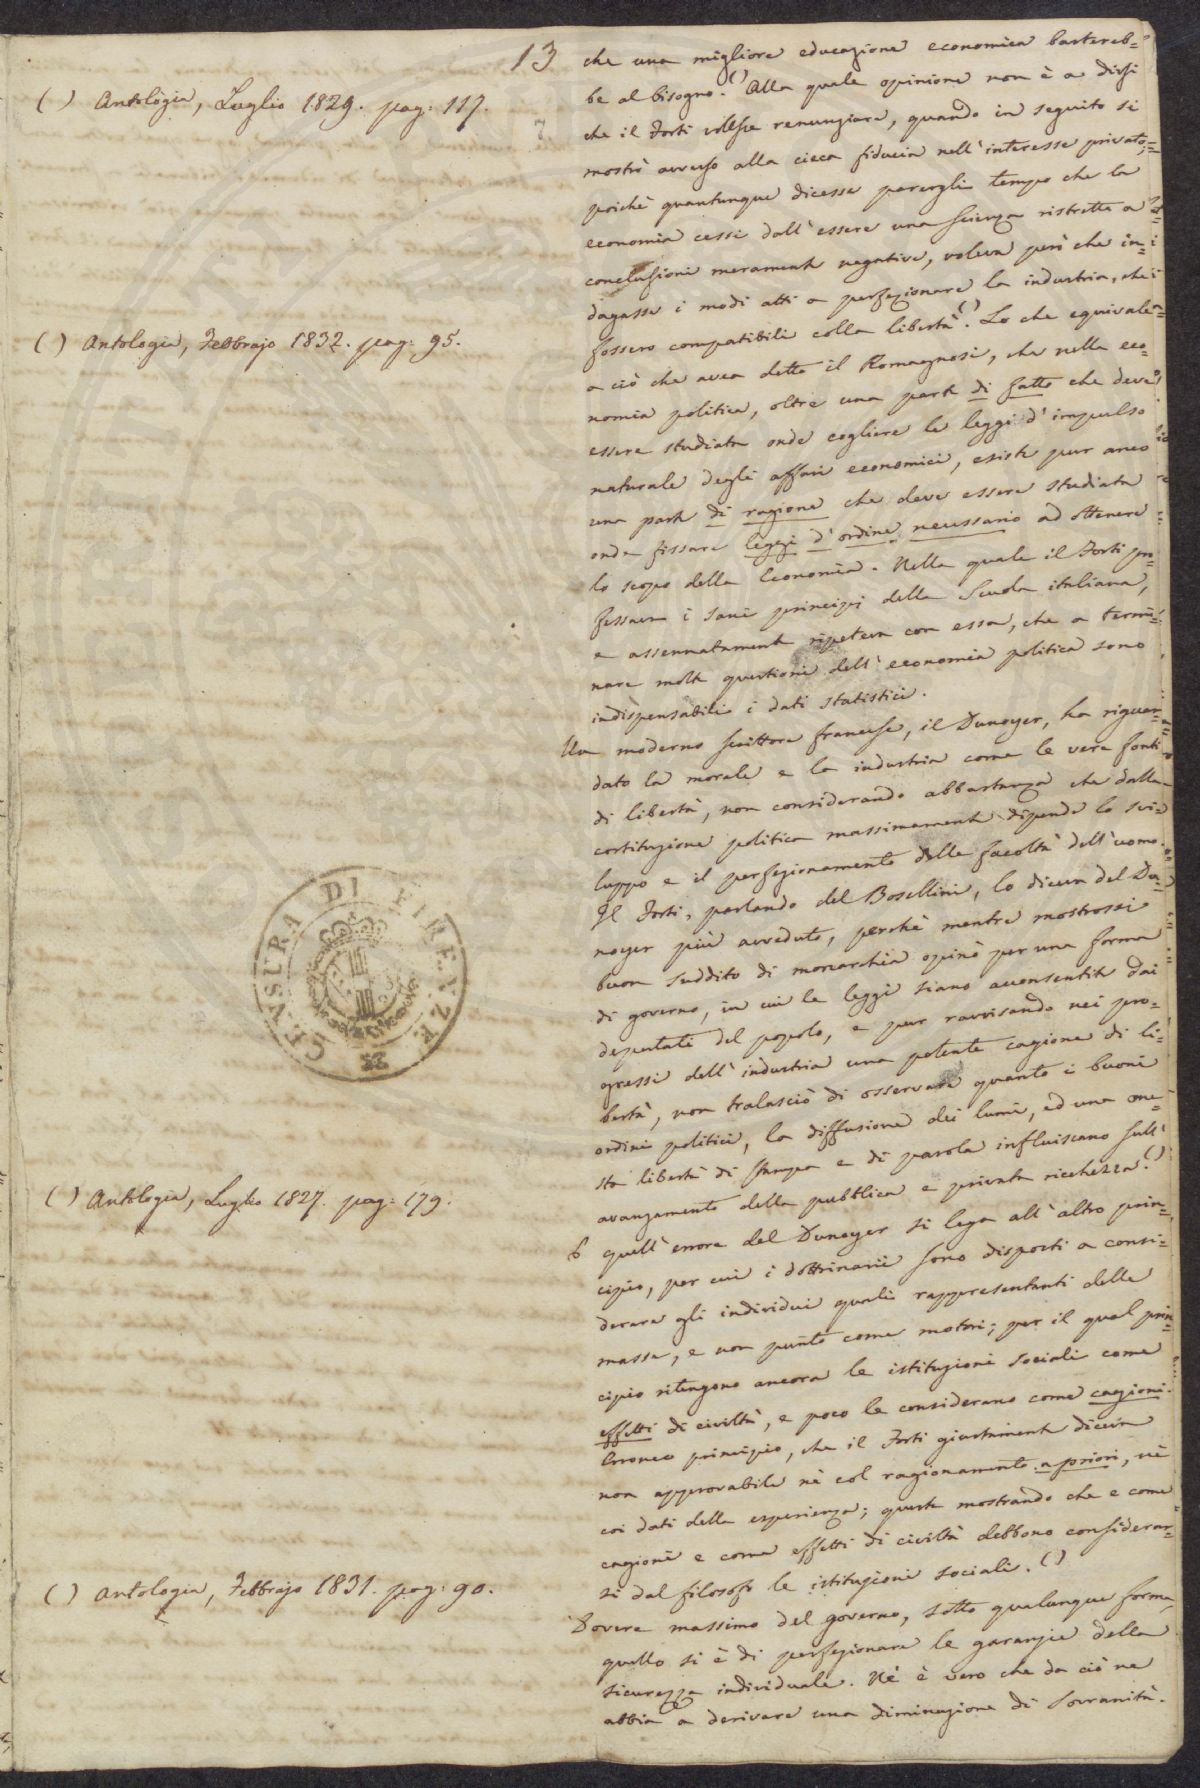 13
( ) Antologia, Luglio 1829. pag: 117.
( ) Antologia, Febbrajo 1832. pag: 95.
CENSURA DI FIRENZE
( ) Antologia, Luglio 1827. pag: 179.
( ) Antologia, Febbrajo 1831. pag: 90.
che una migliore educazione economica bastereb=
be al bisogno. ( ) Alla quale opinione non è a dirsi
che il Forti volesse renunziare, quando in seguito si
mostrò avverso alla cieca fiducia nell'interesse privato;
poichè quantunque dicesse parergli tempo che la
economia cessi dall'essere una scienza ristretta a
conclusioni meramente negative, voleva però che in=
dagasse i modi atti a perfezionare la industria, che
fossero compatibili colla libertà. ( ) Lo che equivale
a ciò che avea detto il Romagnosi, che nella eco=
nomia politica, oltre una parte di fatto che deve
essere studiata onde cogliere le leggi d'impulso
naturale degli affari economici, esiste pur anco
una parte di ragione che deve essere studiata
onde fissare leggi d'ordine necessario ad ottenere
lo scopo della Economia. Nella quale il Forti pro=
fessava i sani principj della Scuola italiana,
e assennatamente ripeteva con essa, che a termi=
nare molte questioni dell'economia politica sono
indispensabili i dati statistici.
Un moderno scrittore francese, il Dunoyer, ha riguar=
dato la morale e la industria come le vere fonti
di libertà, non considerando abbastanza che dalla
costituzione politica massimamente dipende lo svi=
luppo e il perfezionamento delle facoltà dell'uomo.
Il Forti, parlando del Bosellini, lo diceva del Du=
noyer più avveduto, perchè mentre mostrossi
buon suddito di monarchia opinò per una forma
di governo, in cui le leggi siano acconsentite dai
deputati del popolo, e pur ravvisando nei pro=
gressi dell'industria una potente cagione di li=
bertà, non tralasciò di osservare quanto i buoni
ordini politici, la diffusione dei lumi, ed una one=
sta libertà di stampa e di parola influiscano sull'
avanzamento della pubblica e privata ricchezza. ( )
E quell'errore del Dunoyer si lega all'altro prin=
cipio, per cui i dottrinarii sono disposti a consi=
derare gli individui quali rappresentanti delle
masse, e non punto come motori; per il qual prin=
cipio ritengono ancora le istituzioni sociali come
effetti di civiltà, e poco le considerano come cagioni.
Erroneo principio, che il Forti giustamente diceva
non approvabile nè col ragionamento a priori, nè
coi dati della esperienza; queste mostrando che e come
cagioni e come effetti di civiltà debbono considerar=
si dal filosofo le istituzioni sociali. ( )
Dovere massimo del governo, sotto qualunque forma,
quello si è di perfezionare le garanzie della
sicurezza individuale. Nè è vero che da ciò ne
abbia a derivare una diminuzione di Sovranità.